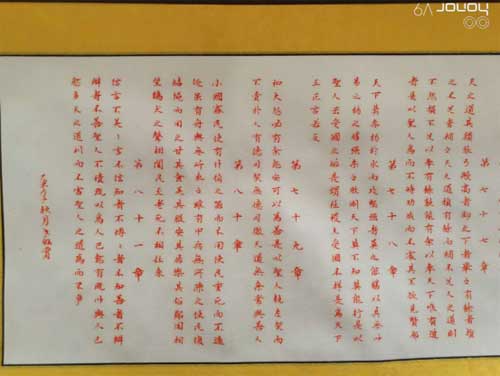 天之道其猶張弓歟高者抑之下者舉之有餘者損
之不足者補之天之道損有餘而補不足人之道則
不然損不足以奉有餘孰能有餘以奉天下唯有道
者是以聖人為而不恃功成而不處其不欲見賢邪
第七十八章
天下莫柔弱於水而攻堅強者莫之能勝以其無以
易之弱之勝強柔之勝剛天下莫不知莫能行是以
聖人云受國之垢是謂社稷主受國不祥是為天下
王正言若反
第七十九章
和大怨必有餘怨安可以為善是以聖人執左契而
不責於人有德司契無德司徹天道無親常與善人
第八十章
小國寡民使有什伯之器而不用使民重死而不遠
徙雖有舟輿無所乘之雖有甲兵無所陳之使民復
結繩而用之甘其食美其服安其居樂其俗鄰國相
望雞犬之聲相聞民至老死不相往來
第八十一章
信言不美々言不信知者不博々者不知善者不辯
辯者不善聖人不積既以為人己愈有既以與人己
愈多天之道利而不害聖人之道為而不爭
秋月